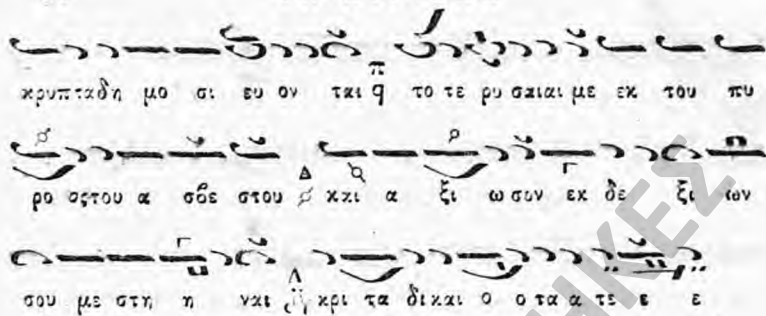 κρυπταδη μο σι ευ ον ται π̣ϥ το τε ρυ σαιαι με εκ του πυ
ρο ςςτου α σβε στου Δ και α ξι ω σον εκ δε ξι ιων
σου με στη η ναι Δ κρι τα δι και ο ο τα α τε ε ε